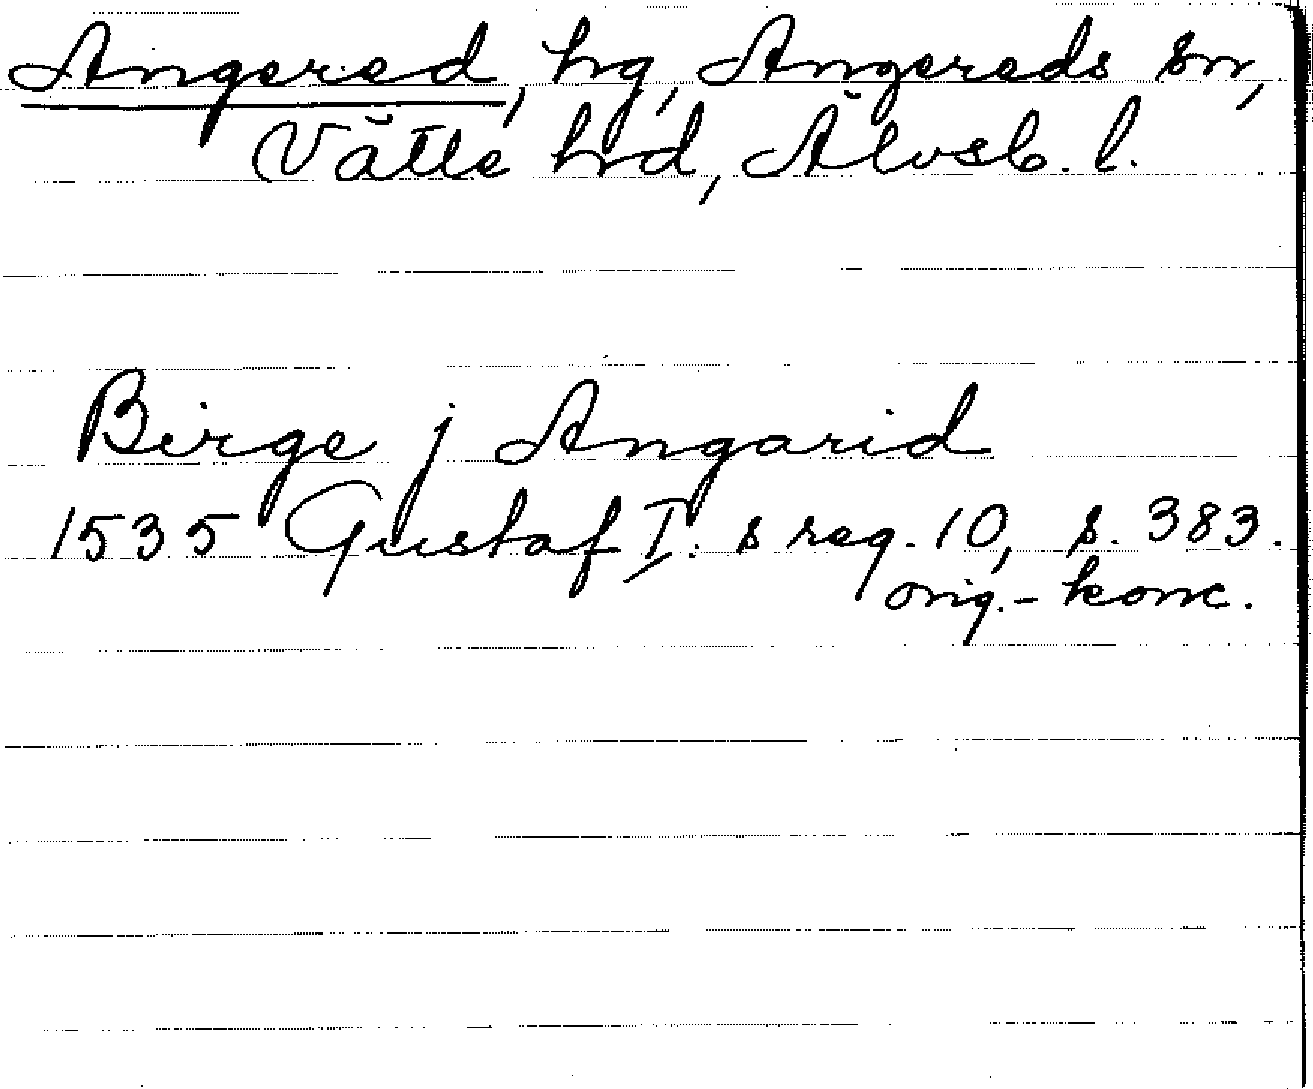 Angered, hg, Angereds sn,
Vätte hd, Älvsb. l.
Birge j Angarid
1535 Gustaf I:s reg. 10, s. 383.
orig.-konc.